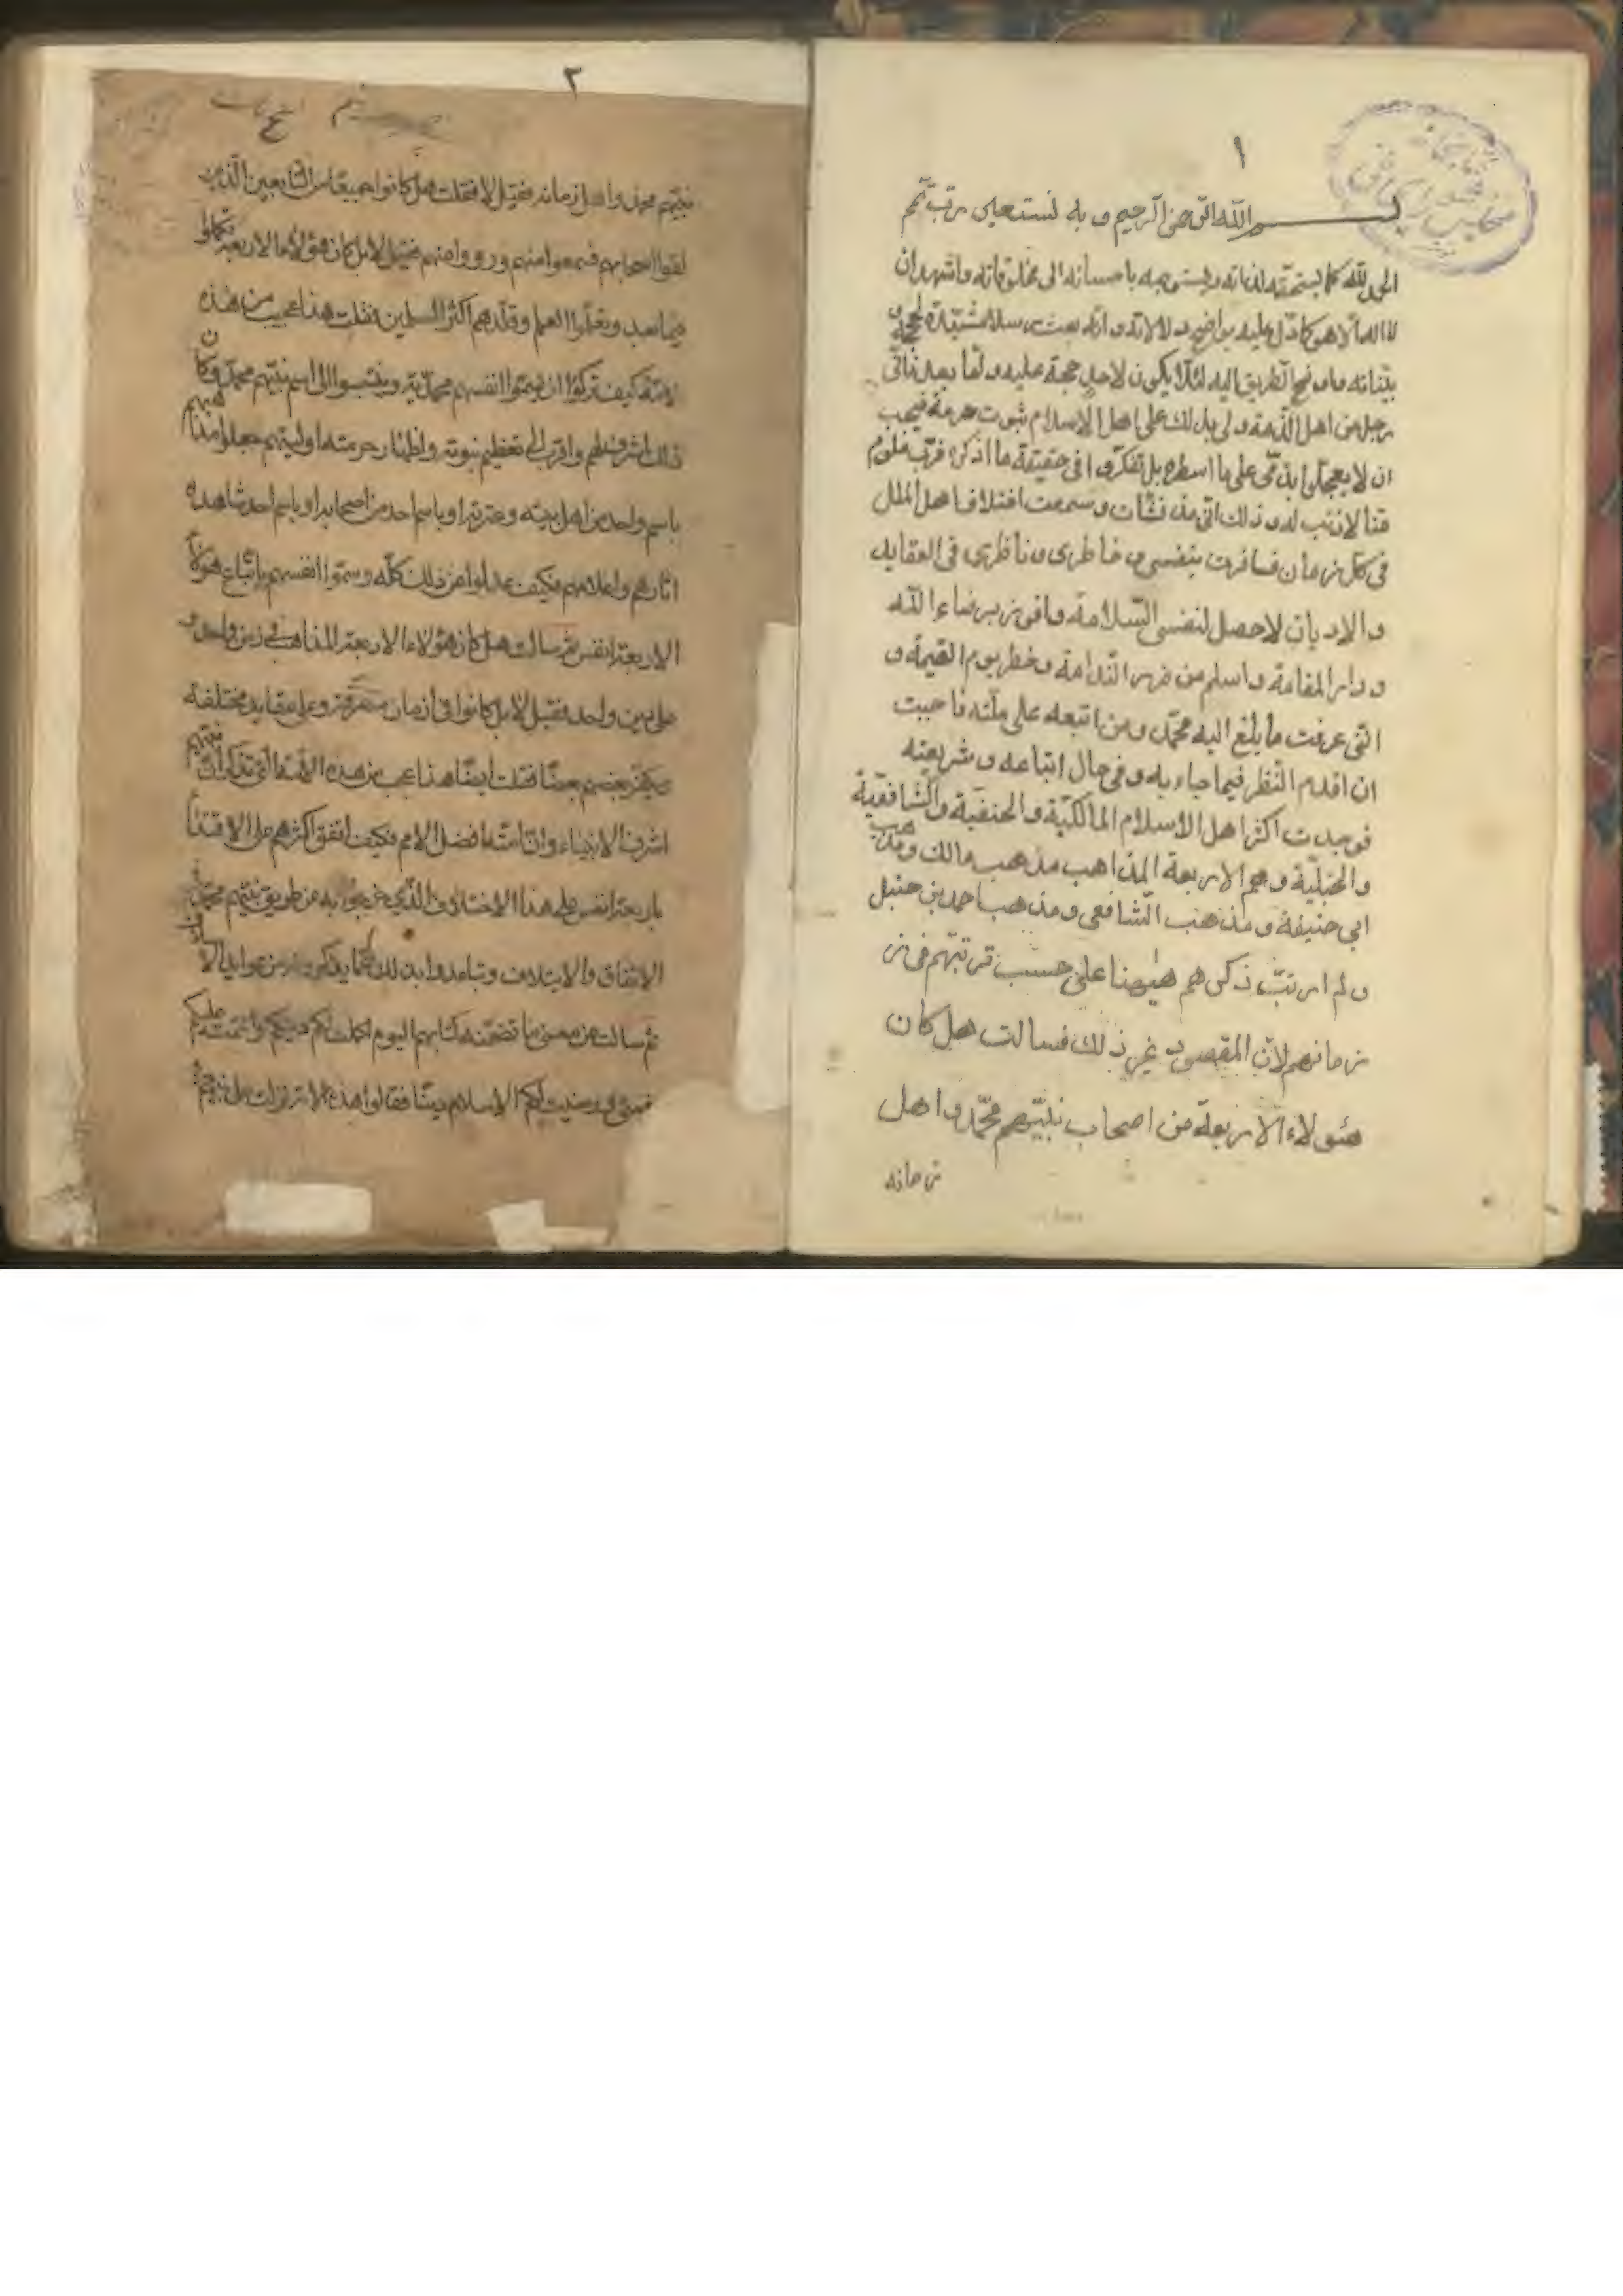 ١
بسم الله الرحمن الرحيم و به نستعين رب تمم
الحمد لله كما يستحقه لذاته ويستوجبه باحسانه الى مخلوقاته واشهد ان
لا اله الا هو كما دل عليه بواضح دلالاته وانه بعث رسلا مشيدة لحججه و
بيناته وما وضح الطريق اليه لئلا يكون لاحد حجة عليه ولما بعد فانى
رجل من اهل الذمة ولى بذلك على اهل الاسلام ثبوت حرمة فيجب
ان لا يعجلوا بذمى على ما اسطره بل تفكروا فى حقيقة ما اذكره فرب ملوم
منا لا ذنب له وذلك انى مذ نشات وسمعت اختلاف اهل الملل
فى كل زمان فسافرت بنفسى و خاطرى و ناظرى فى العقايد
والاديان لاحصل لنفسى السلامة وافوز برضاء الله
ودار المقامة واسلم من ضرر الندامة وخطر يوم القيمة و
التى عرفت ما بلغ اليه محمد ومن اتبعه على ملته فاحببت
ان اقدم النظر فيما جاء به وفى حال اتباعه وشريعته
فوجدت اكثر اهل الاسلام المالكية والحنفية والشافعية
والحنبلية وهم الاربعة المذاهب مذهب مالك ومذهب
ابى حنيفة ومذهب الشافعى ومذهب احمد بن حنبل
ولم ارتب ذكرهم هيهنا على حسب ترتبهم فى ز
زمانهم لان المقصود غير ذلك فسالت هل كان
هئولاء الاربعة من اصحاب نبيهم محمد واهل
زمانه
٢
نبيهم محمد واهل زمانه فقيل لا فقلت هل كانوا جميعا من التابعين الذين
لقوا اصحابهم فسمعوا منهم ورووا عنهم فقيل لا بل كان هؤلاء الاربعة تكلموا
فيما بعد وتعلموا العلم وقلدهم اكثر المسلمين فقلت هذا عجيب من هذه
الامة كيف تركوا ان يسموا انفسهم محمدية وينتسبوا الى اسم نبيهم محمد وكان
ذلك اشرف لهم واقرب الى تعظيم نبوته واظهار حرمته او ليتهم جعلوا مذاهبهم
باسم واحد من اهل بيته وعترته او باسم احد من اصحابه او باسم احد شاهد
اثارهم واعلامهم فكيف عدلوا عن ذلك كله وسموا انفسهم باتباع هؤلاء
الاربعة انفس ثم سالت هل كان هؤلاء الاربعة المذاهب فى زمن واحد و
على دين واحد فقيل لا بل كانوا فى ازمان متفرقة وعلى عقايد مختلفة
يكفر بعضهم بعضا فقلت ايضا هذا عجب من هذه الامة التى تذكر ان نبيهم
اشرف الانبياء وان امته افضل الامم فكيف اتفق اكثرهم على الاقتداء
باربعة انفس على هذا الاختلاف الذى خرجوا به عن طريق نبيهم محمد فى
الاتفاق والايتلاف وتباعدوا بذلك عما يذكرونه من عوايد
ثم سالت عن معنى ما تضمنه كتابهم اليوم اكملت لكم دينكم واتممت عليكم
نعمتى ورضيت لكم الاسلام دينا فقالوا هذه الاية نزلت على نبيهم